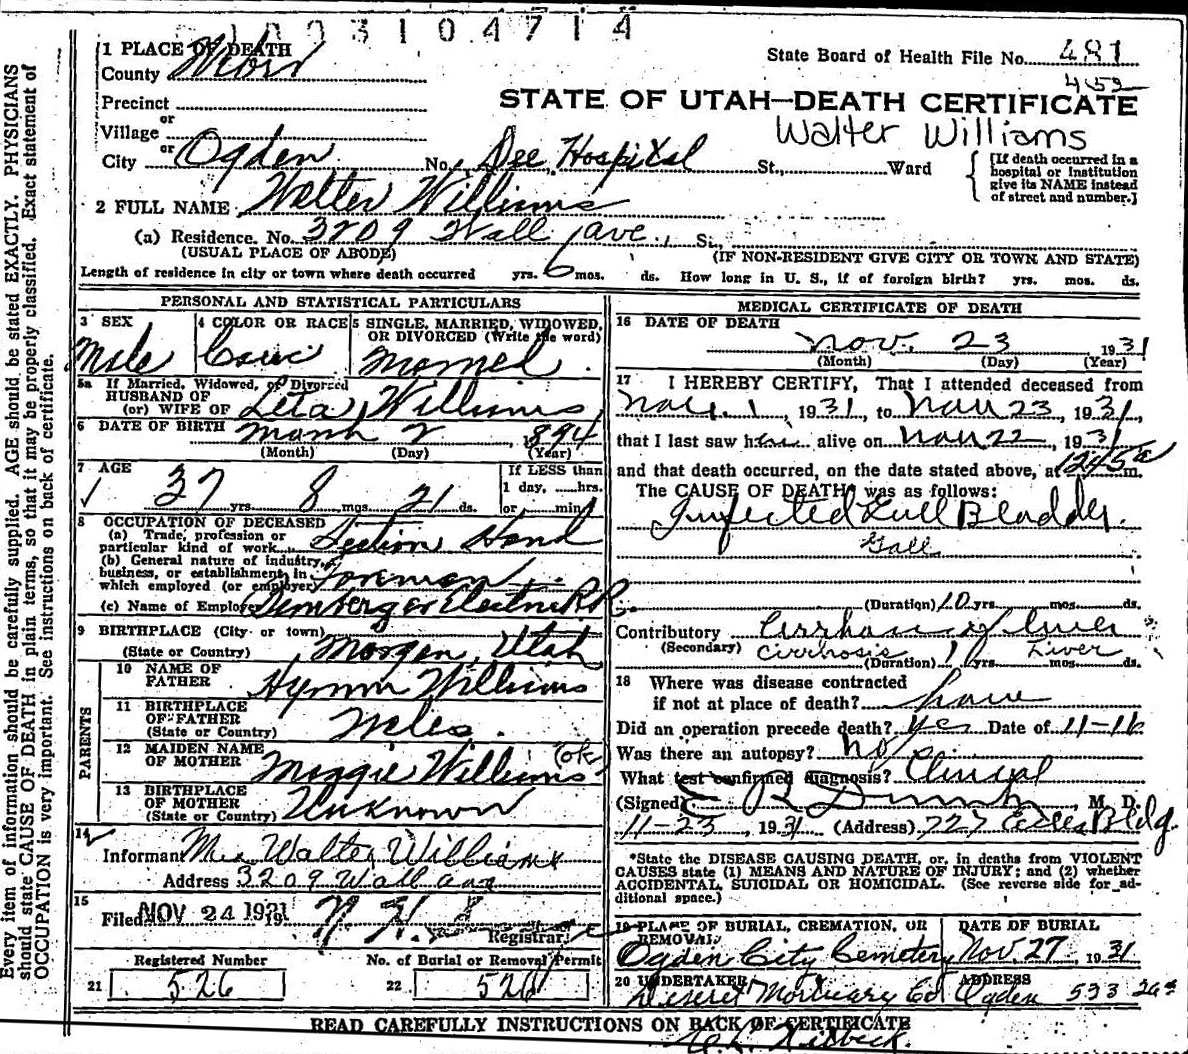 003104714
1 PLACE OF DEATH
State Board of Health File No. 481
County Weber
452
Precinct
STATE OF UTAH—DEATH CERTIFICATE
or
Village
Walter Williams
or
City Ogden No. Dee Hospital St., Ward
[If death occurred in a hospital or Institution give its NAME instead of street and number.]
2 FULL NAME Walter Williams
(a) Residence. No. 3209 Wall ave. St.,
(USUAL PLACE OF ABODE) (IF NON-RESIDENT GIVE CITY OR TOWN AND STATE)
Length of residence in city or town where death occurred yrs. 6 mos. ds. How long in U. S., if of foreign birth? yrs. mos. ds.
PERSONAL AND STATISTICAL PARTICULARS
3 SEX
Male
4 COLOR OR RACE
Cauc
5 SINGLE, MARRIED, WIDOWED,
OR DIVORCED (Write the word)
Married
5a If Married, Widowed, or Divorced
HUSBAND OF
(or) WIFE OF Leta Williams
6 DATE OF BIRTH March 2, 1894
(Month) (Day) (Year)
7 AGE
If LESS than
1 day, ......hrs.
or ......min.
37 yrs. 8 mos. 21 ds.
8 OCCUPATION OF DECEASED
(a) Trade, profession or
particular kind of work Section Hand
(b) General nature of industry,
business, or establishment in
which employed (or employer) Foreman
(c) Name of Employer Bamberger Electric R.R.
9 BIRTHPLACE (City or town)
(State or Country) Morgan, Utah
PARENTS
10 NAME OF
FATHER Hymn Williams
11 BIRTHPLACE
OF FATHER
(State or Country) Wales.
12 MAIDEN NAME
OF MOTHER Maggie Williams (ok)
13 BIRTHPLACE
OF MOTHER
(State or Country) Unknown
14
Informant Mrs Walter Williams
Address 3209 Wall ave
15
Filed NOV 24 1931 19
Registrar.
Registered Number No. of Burial or Removal Permit
21 526 22 526
MEDICAL CERTIFICATE OF DEATH
16 DATE OF DEATH
Nov. 23 1931
(Month) (Day) (Year)
17 I HEREBY CERTIFY, That I attended deceased from
Nov. 1, 1931, to Nov 23, 1931,
that I last saw him alive on Nov 22, 1931
and that death occurred, on the date stated above, at 1245 a m.
The CAUSE OF DEATH was as follows:
Infected Gall Bladder.
Gall
(Duration) 10 yrs. mos. ds.
Contributory Cirrhosis of liver
(Secondary) Cirrhosis Liver
(Duration) yrs. mos. ds.
18 Where was disease contracted
if not at place of death? home
Did an operation precede death? yes Date of 11-16
Was there an autopsy? no
What test confirmed diagnosis? Clinical
(Signed) , M. D.
11-23, 1931 (Address) 727 Eccles Bldg.
*State the DISEASE CAUSING DEATH, or, in deaths from VIOLENT
CAUSES state (1) MEANS AND NATURE OF INJURY; and (2) whether
ACCIDENTAL, SUICIDAL OR HOMICIDAL. (See reverse side for additional space.)
19 PLACE OF BURIAL, CREMATION, OR REMOVAL DATE OF BURIAL
Ogden City Cemetery Nov. 27, 1931
20 UNDERTAKER ADDRESS
Deseret Mortuary Co Ogden 533 26st
READ CAREFULLY INSTRUCTIONS ON BACK OF CERTIFICATE
Every item of information should be carefully supplied. AGE should be stated EXACTLY. PHYSICIANS
should state CAUSE OF DEATH in plain terms, so that it may be properly classified. Exact statement of
OCCUPATION is very important. See instructions on back of certificate.